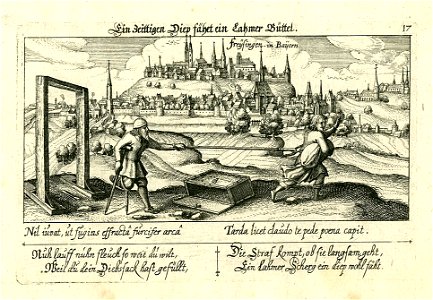 Ein zeittigen Diep fähet ein Lahmer Büttel.
17
Freysingen in Bayern
Nil iuvat, ut fugias effractâ furcifer arcâ
Tarda licet claudo te pede poena capit.
Nuhn lauff nuhn fleuch so weit du wilt,
Weil du dein Diebssack hast gefüllt,
Die Straf kompt, ob sie langsam geht,
Ein lahmer Scherg ein diep wohl fäht.